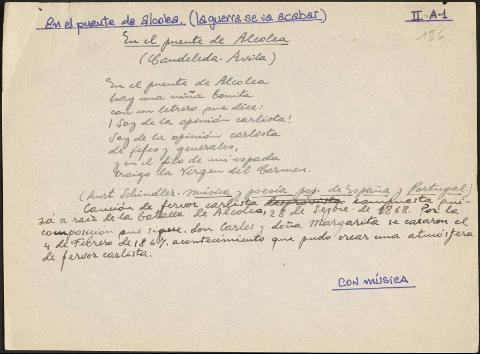 En el puente de alcolea. (la guerra se va acabar)
II-A-1
126
En el puente de Alcolea
(Candeleda. Avila)
En el puente de Alcolea
hay una niña bonita
con un letrero que dice:
¡Soy de la opinión carlista!
Soy de la opinión carlista
de jefes y generales,
y en el filo de mi espada
traigo la Virgen del Carmen.
(Kurt Schindler. Música y poesía pop. de España y Portugal.)
Canción de fervor carlista compuesta qui-
zá a raíz de la batalla de Alcolea, 28 de Sepbre. de 1868. Por la
composición que sigue. don Carlos y doña Margarita se casaron el
4 de Febrero de 1867. acontecimiento que pudo crear una atmósfera
de fervor carlista.
CON MÚSICA